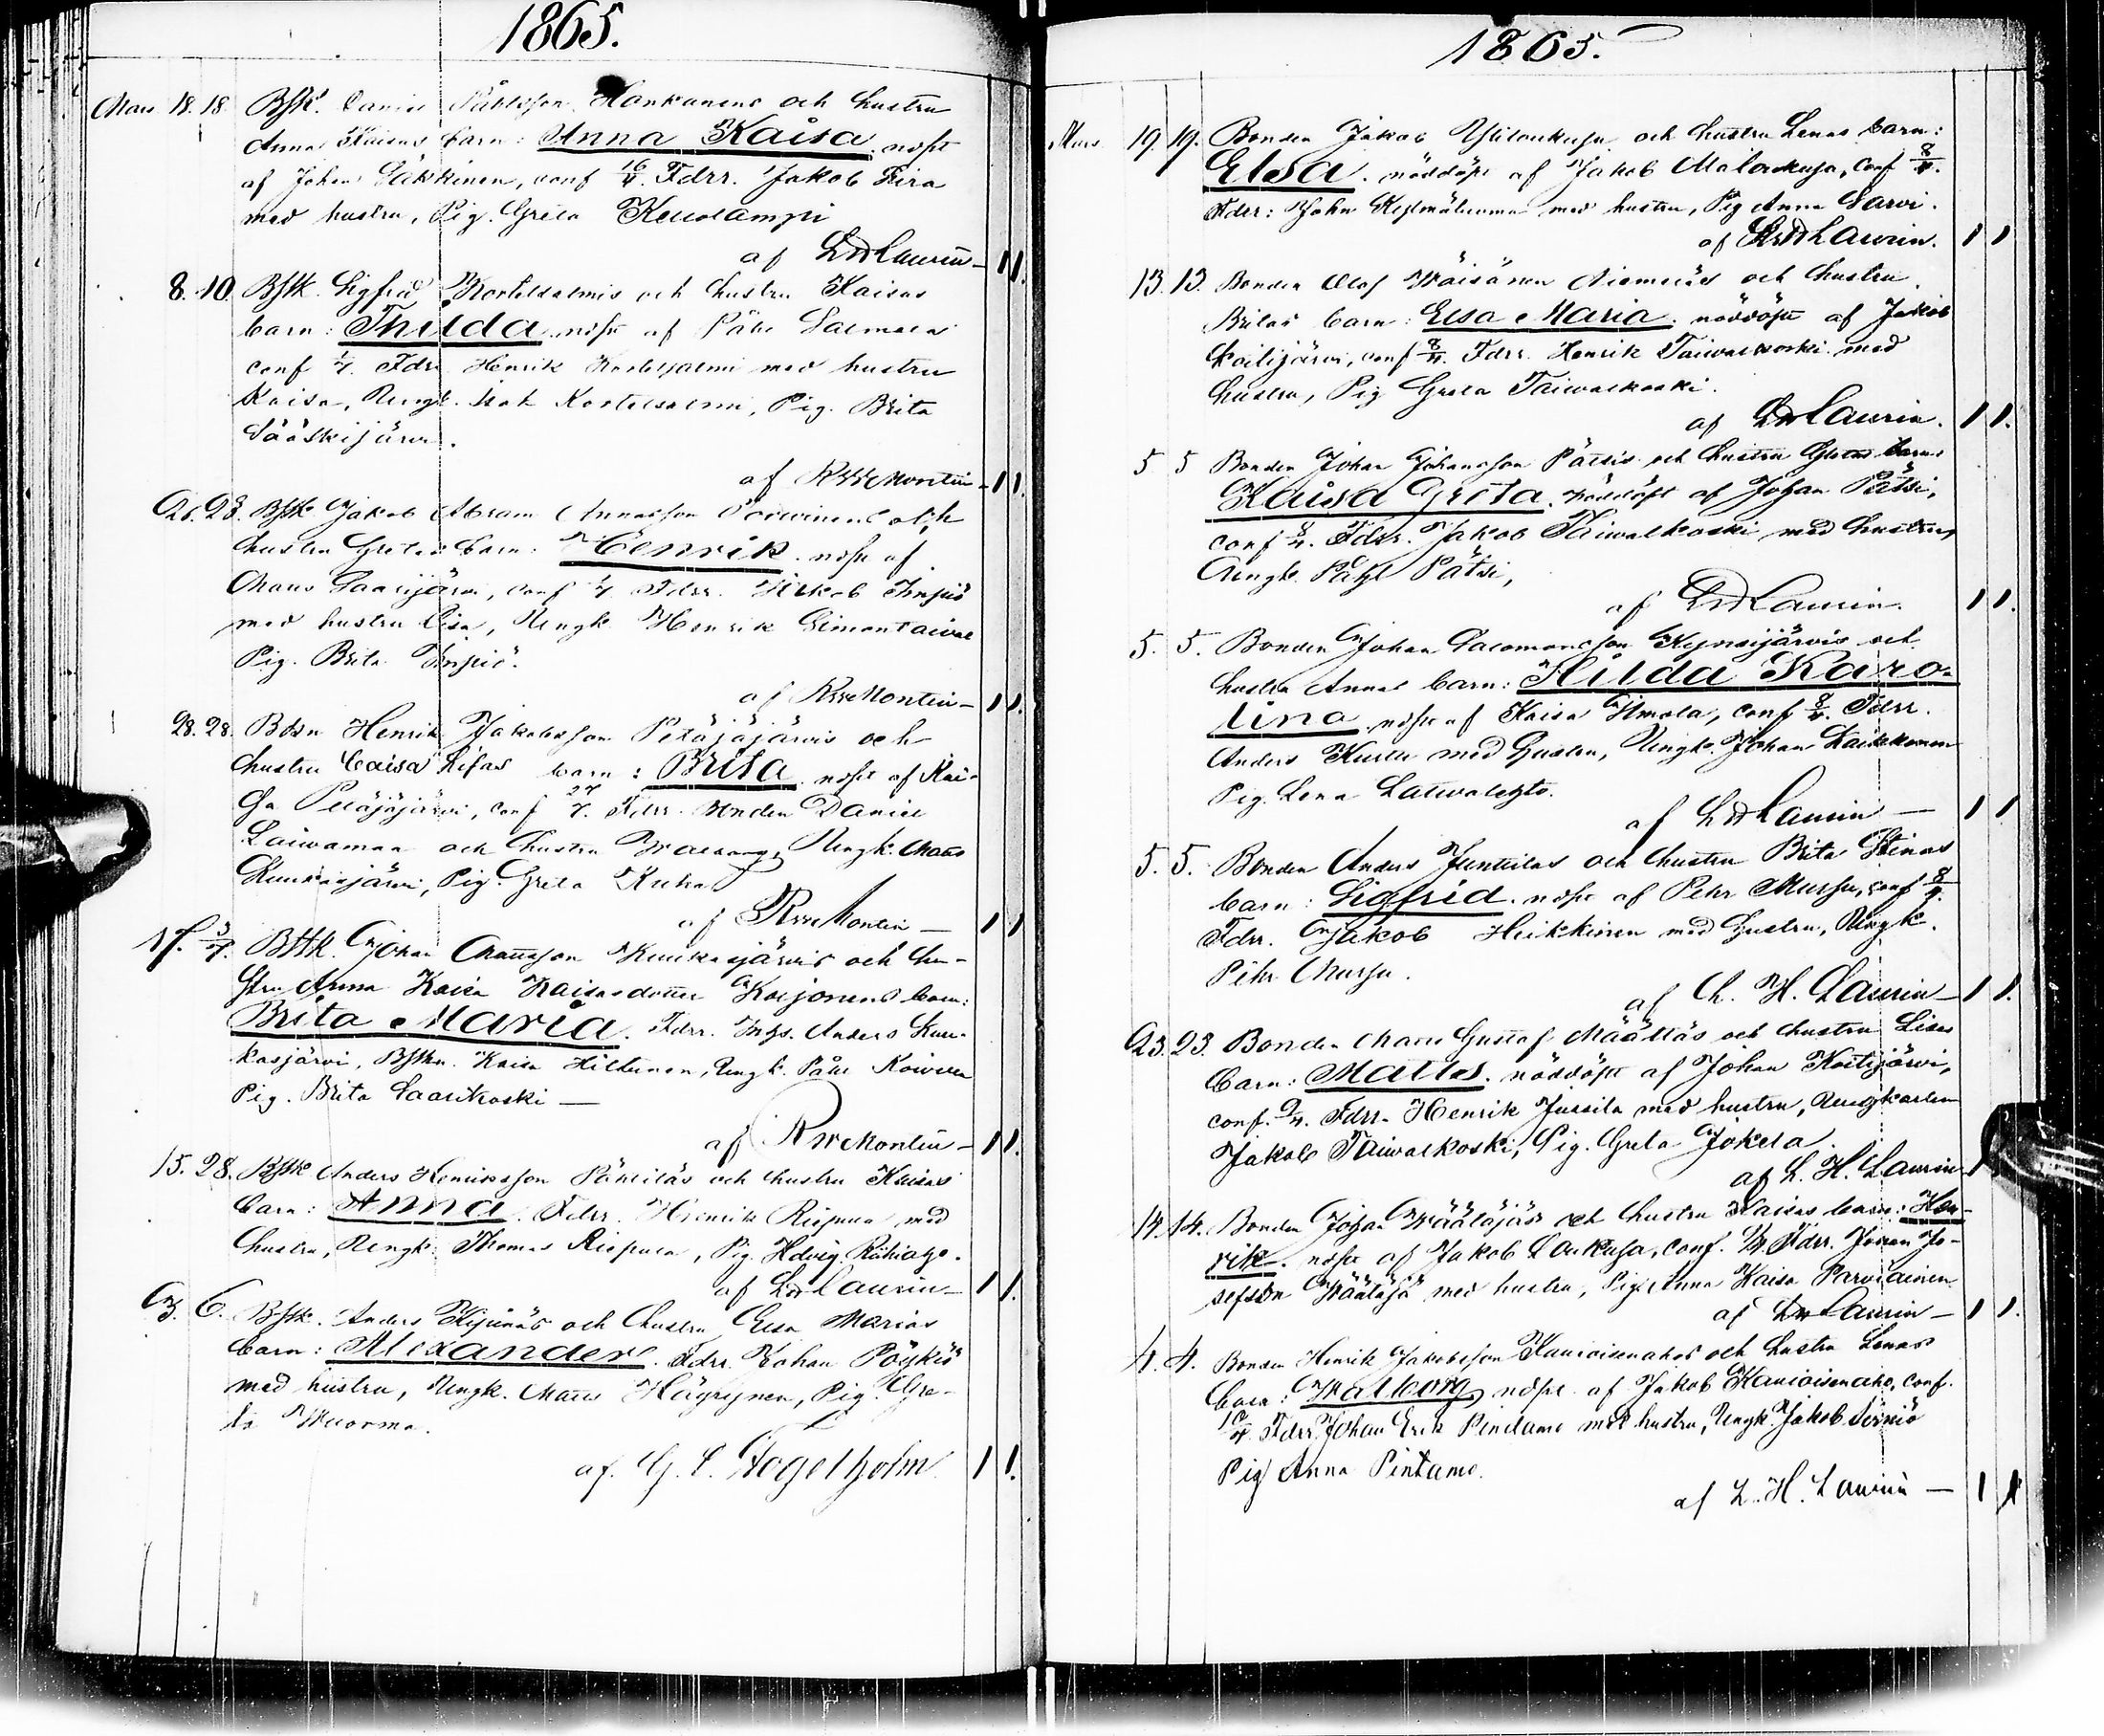 1865.
Mars 18. 18. Bstk. Daniel Påhlsson Hankanens och hustru
Anna Kaisas barn: Anna Kaisa. nöpt
af Johan Säkkinen, conf 16/4. Fdrr. Jakob
med hustru, Pig. Greta Keuolampi
af LHLaurin — 1 1.
8. 10. Bstk. Sigfrid Korteksalmis och hustru Kaisas
barn: Thilda nöpt af Påhl
conf 1/4. Fdrr Henrik Korteksalmi med hustru
Kaisa, Dengk. Isak Korteksalmi, Pig. Brita
Sääskijärvi.
af Montin — 1 1.
23. Bstk Jakob Abram Annasson och
hustru Gretas barn: Henrik. nöpt af
Mats Saarijärvi, conf Fdrr. Jakob Inpiö
med hustru Lisa, Dengk. Henrik Simontaival
Pig. Brita Inpiö.
af Montin — 1 1.
28. 28. Bdn Henrik Jakobsson Petäjäjärvis och
hustru Caisa barn: Brita nöpt af Kai-
sa Petäjäjärvi, conf 27/7. Fdrr. Bonden Daniel
Laivamaa och hustru Walborg, Dengk. Mats
Kuukasjärvi, Pig. Greta Kuha
af Montin — 1 1
17. Bstk. Johan Matsson Kuukasjärvis och hu-
stru Anna Kaisa Kaisasdotter Korjonens barn:
Brita Maria. Fdrr. Anders Kuu-
kasjärvi, Bstkn. Kaisa Hiltunen, Dengk. Påhl Koivula
Pig. Brita Saarikoski —
af Montin — 1 1.
15. 28. Bstk Anders Henriksson Pätsiläs och hustru Kaisas
barn: Anna. Fdrr. Henrik Riepula med
hustru, Dengk: Thomas Riepula, Pig. Hdvig
af LHLaurin — 1 1.
3. 6. Bstk. Anders Kijunäs och hustru Elsa Marias
barn: Alexander. Fdrr. Johan Pöykiö
med hustru, Dengk. Mats Häyrynen, Pig. Gre-
ta Wuorma.
af. G. L. Fogelholm 1 1.
1865.
Mars 19. 19. Bonden Jakob Yliloukusa och hustru Lenas barn:
Elsa. nöddöpt af Jakob Malankusa, conf 8/4.
Fdrr: John med hustru, Pig Anna Sarvi.
af LHLaurin. 1 1
13. 13. Bonden Olof Wäisänen Niemeläs och hustru
Britas barn: Elsa Maria. nöddöpt af Jakob
Koitijärvi, conf 8/4. Fdrr. Henrik Taivalkoski med
hustru, Pig Greta Taivalkoski.
af LHLaurin. 1 1.
5 5 Bonden Johan Johansson Pätsis och hustru Gretas barn
Kaisa Greta. nöddöpt af Johan Pätsi,
conf 8/4. Fdrr. Jakob Taivalkoski med hustru,
Drengk. Påhl Pätsi,
af LHLaurin. 1 1.
5. 5. Bonden Johan Salomonsson Kynsijärvis och
hustru Annas barn: Hilda Karo-
lina nöpt af Kaisa Ilmola, conf 8/4. Fdrr.
Anders Kurtti med hustru, Dengk. Johan Laikkonen
Pig. Lena Latvalehto.
af LHLaurin — 1 1
5. 5. Bonden Anders Junttilas och hustru Brita Stinas
barn: Sigfrid. nöpt af Pehr Mursu, conf 8/4.
Fdrr. Jakob Heikkinen med hustru, Dengk.
Pehr Mursu.
af L. H. Laurin — 1 1.
23. 23. Bonden Mats Gustaf Määttäs och hustru Lisas
barn: Mattes. nöddöpt af Johan Kostijärvi,
conf. 9/4. Fdrr. Henrik Jussila med hustru, Drengkarlen
Jakob Taivalkoski, Pig. Greta Jokela.
af L. H. Laurin 1
14. 14. Bonden Johan Wäätäjäs och hustru Kaisas barn: Hen-
rik. nöpt af Jakob Loukusa, conf. Fdrr. Johan Jo-
sefson Wäätäjä med hustru, Pig. Anna Kaisa Parviainen
af LHLaurin — 1 1.
4. 4. Bonden Henrik Jakobsson Kauvoisenahos och hustru Lenas
barn: Walborg nöpt af Jakob Kauvoisenaho, conf.
10/4. Fdrr Johan Erik Pintamo med hustru, Dengk. Jakob Sirniö
Pig Anna Pintamo.
af L. H. Laurin — 1 1